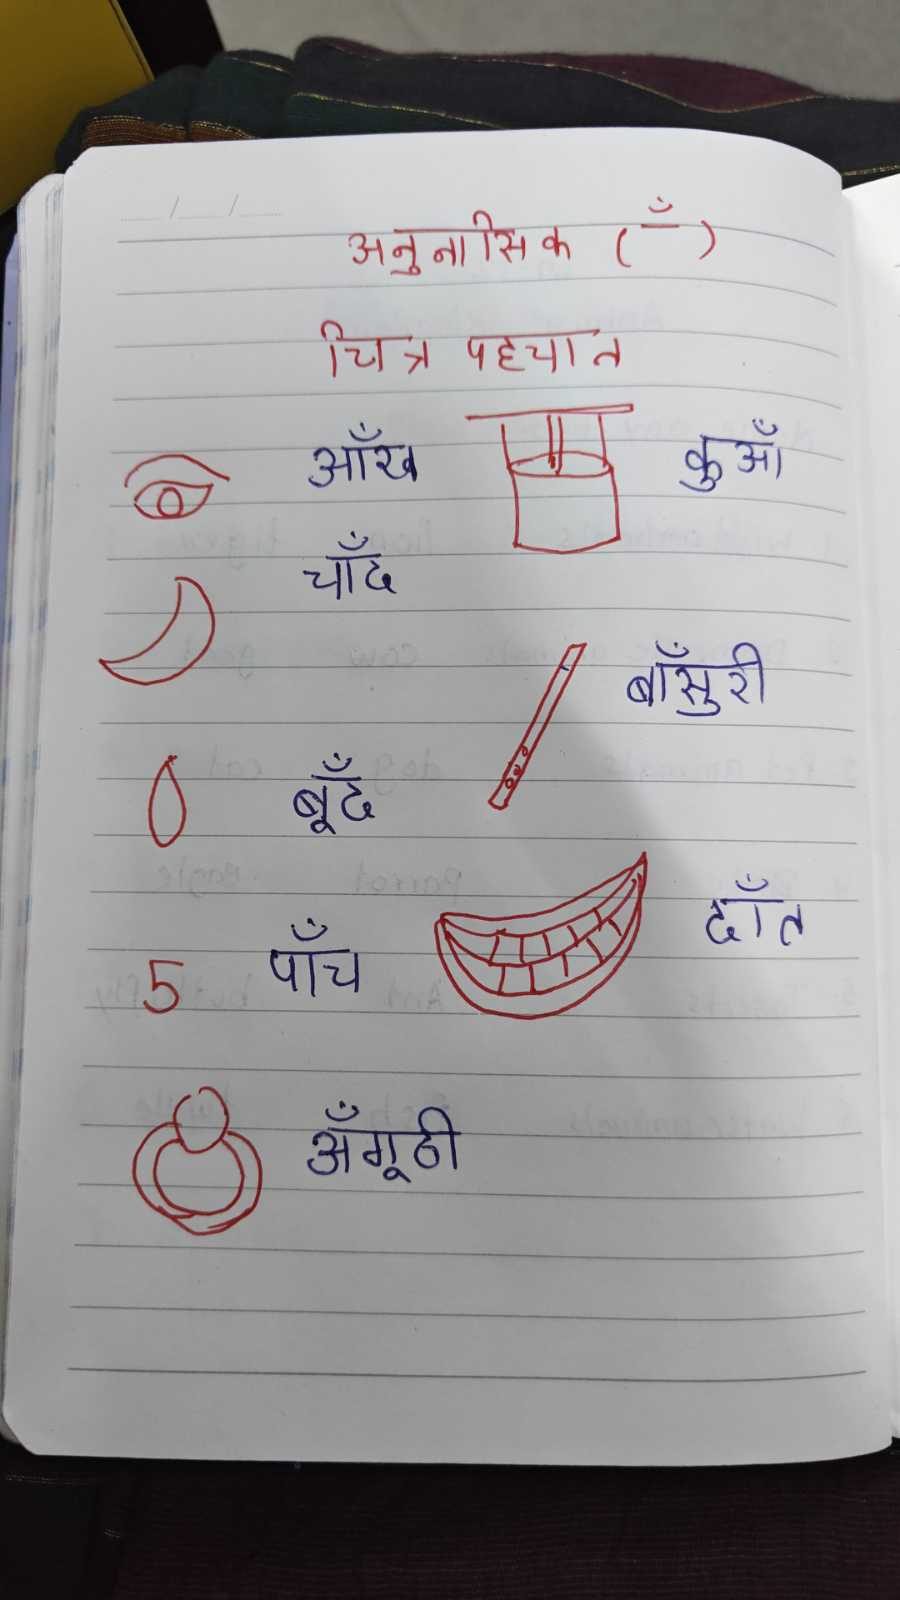 अनुनासिक ( ँ )
चित्र पहचान
आँख
कुआँ
चाँद
बाँसुरी
बूँद
दाँत
5 पाँच
अँगूठी